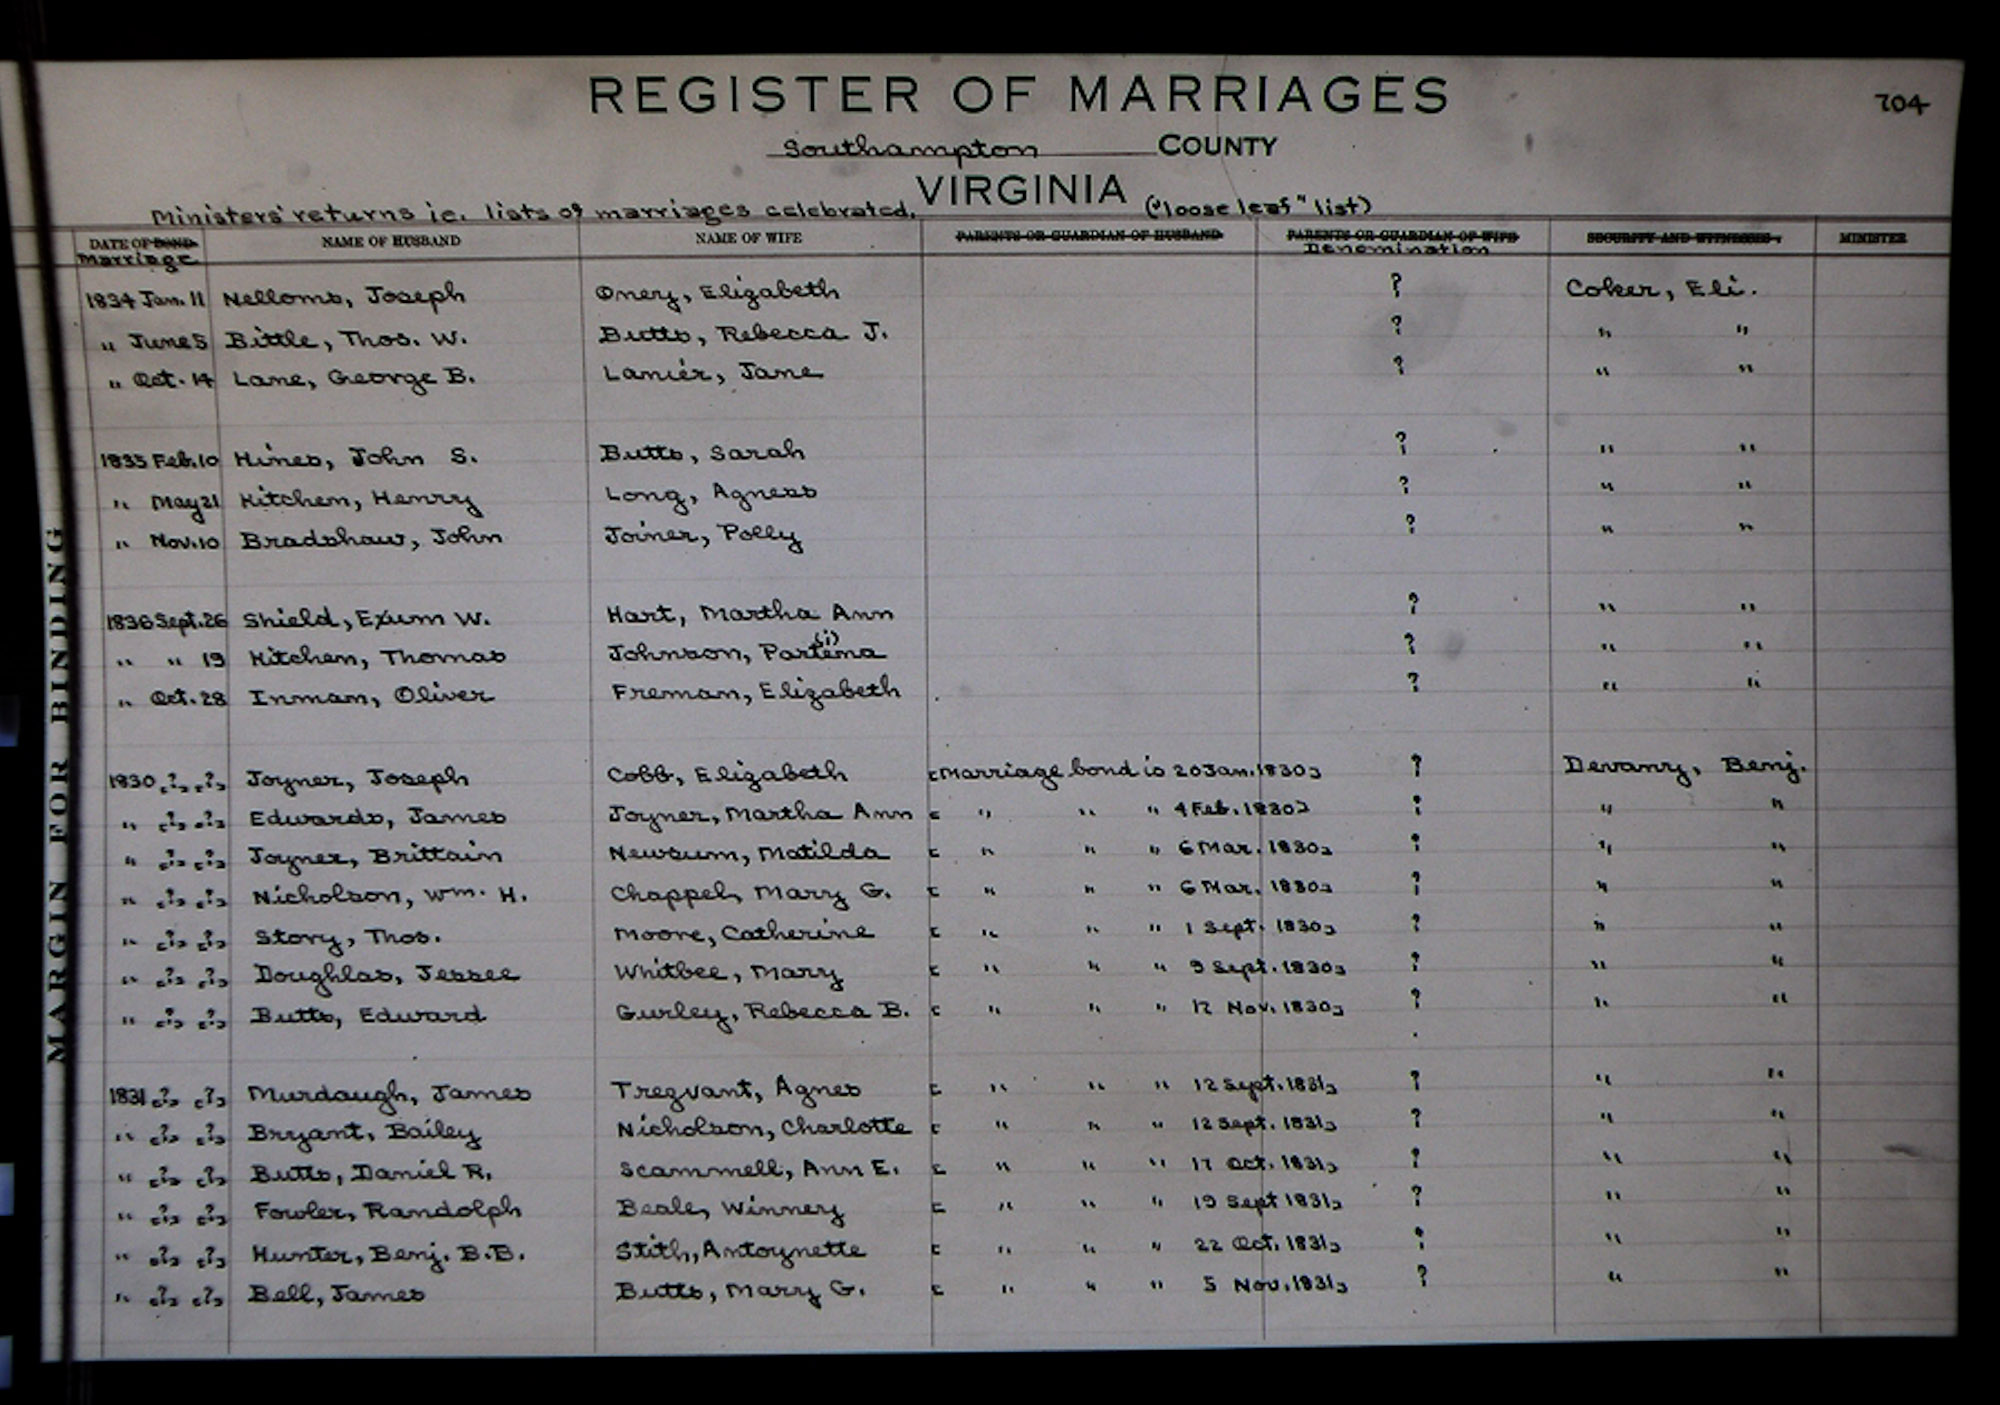 REGISTER OF MARRIAGES
704
Southampton COUNTY
VIRGINIA
Ministers' returns ie. lists of marriages celebrated. ("loose leaf" list)
DATE OF BOND NAME OF HUSBAND NAME OF WIFE PARENTS OR GUARDIAN OF HUSBAND PARENTS OR GUARDIAN OF WIFE SECURITY AND WITNESSES. MINISTER
Marriage Denomination
1834 Jan. 11 Nelloms, Joseph Onery, Elizabeth ? Coker, Eli.
" June 5 Bittle, Thos. W. Butts, Rebecca J. ? " "
" Oct. 14 Lane, George B. Lanier, Jane ? " "
1835 Feb. 10 Hines, John S. Butts, Sarah ? " "
" May 21 Kitchen, Henry Long, Agness ? " "
" Nov. 10 Bradshaw, John Joiner, Polly ? " "
1836 Sept. 26 Shield, Exum W. Hart, Martha Ann ? " "
" " 19 Kitchen, Thomas Johnson, Partema (i) ? " "
" Oct. 28 Inman, Oliver Freman, Elizabeth ? " "
1830 [?] [?] Joyner, Joseph Cobb, Elizabeth [Marriage bond is 20 Jan. 1830] ? Devany, Benj.
" [?] [?] Edwards, James Joyner, Martha Ann [ " " " 4 Feb. 1830] ? " "
" [?] [?] Joyner, Brittain Newsum, Matilda [ " " " 6 Mar. 1830] ? " "
" [?] [?] Nicholson, Wm. H. Chappel, Mary G. [ " " " 6 Mar. 1830] ? " "
" [?] [?] Story, Thos. Moore, Catherine [ " " " 1 Sept. 1830] ? " "
" [?] [?] Doughlas, Jessee Whitbee, Mary [ " " " 9 Sept. 1830] ? " "
" [?] [?] Butts, Edward Gurley, Rebecca B. [ " " " 12 Nov. 1830] ? " "
1831 [?] [?] Murdaugh, James Trezvant, Agnes [ " " " 12 Sept. 1831] ? " "
" [?] [?] Bryant, Bailey Nicholson, Charlotte [ " " " 12 Sept. 1831] ? " "
" [?] [?] Butts, Daniel R. Scammell, Ann E. [ " " " 17 Oct. 1831] ? " "
" [?] [?] Fowler, Randolph Beale, Winney [ " " " 19 Sept 1831] ? " "
" [?] [?] Hunter, Benj. B.B. Stith, Antoynette [ " " " 22 Oct. 1831] ? " "
" [?] [?] Bell, James Butts, Mary G. [ " " " 5 Nov. 1831] ? " "
MARGIN FOR BINDING